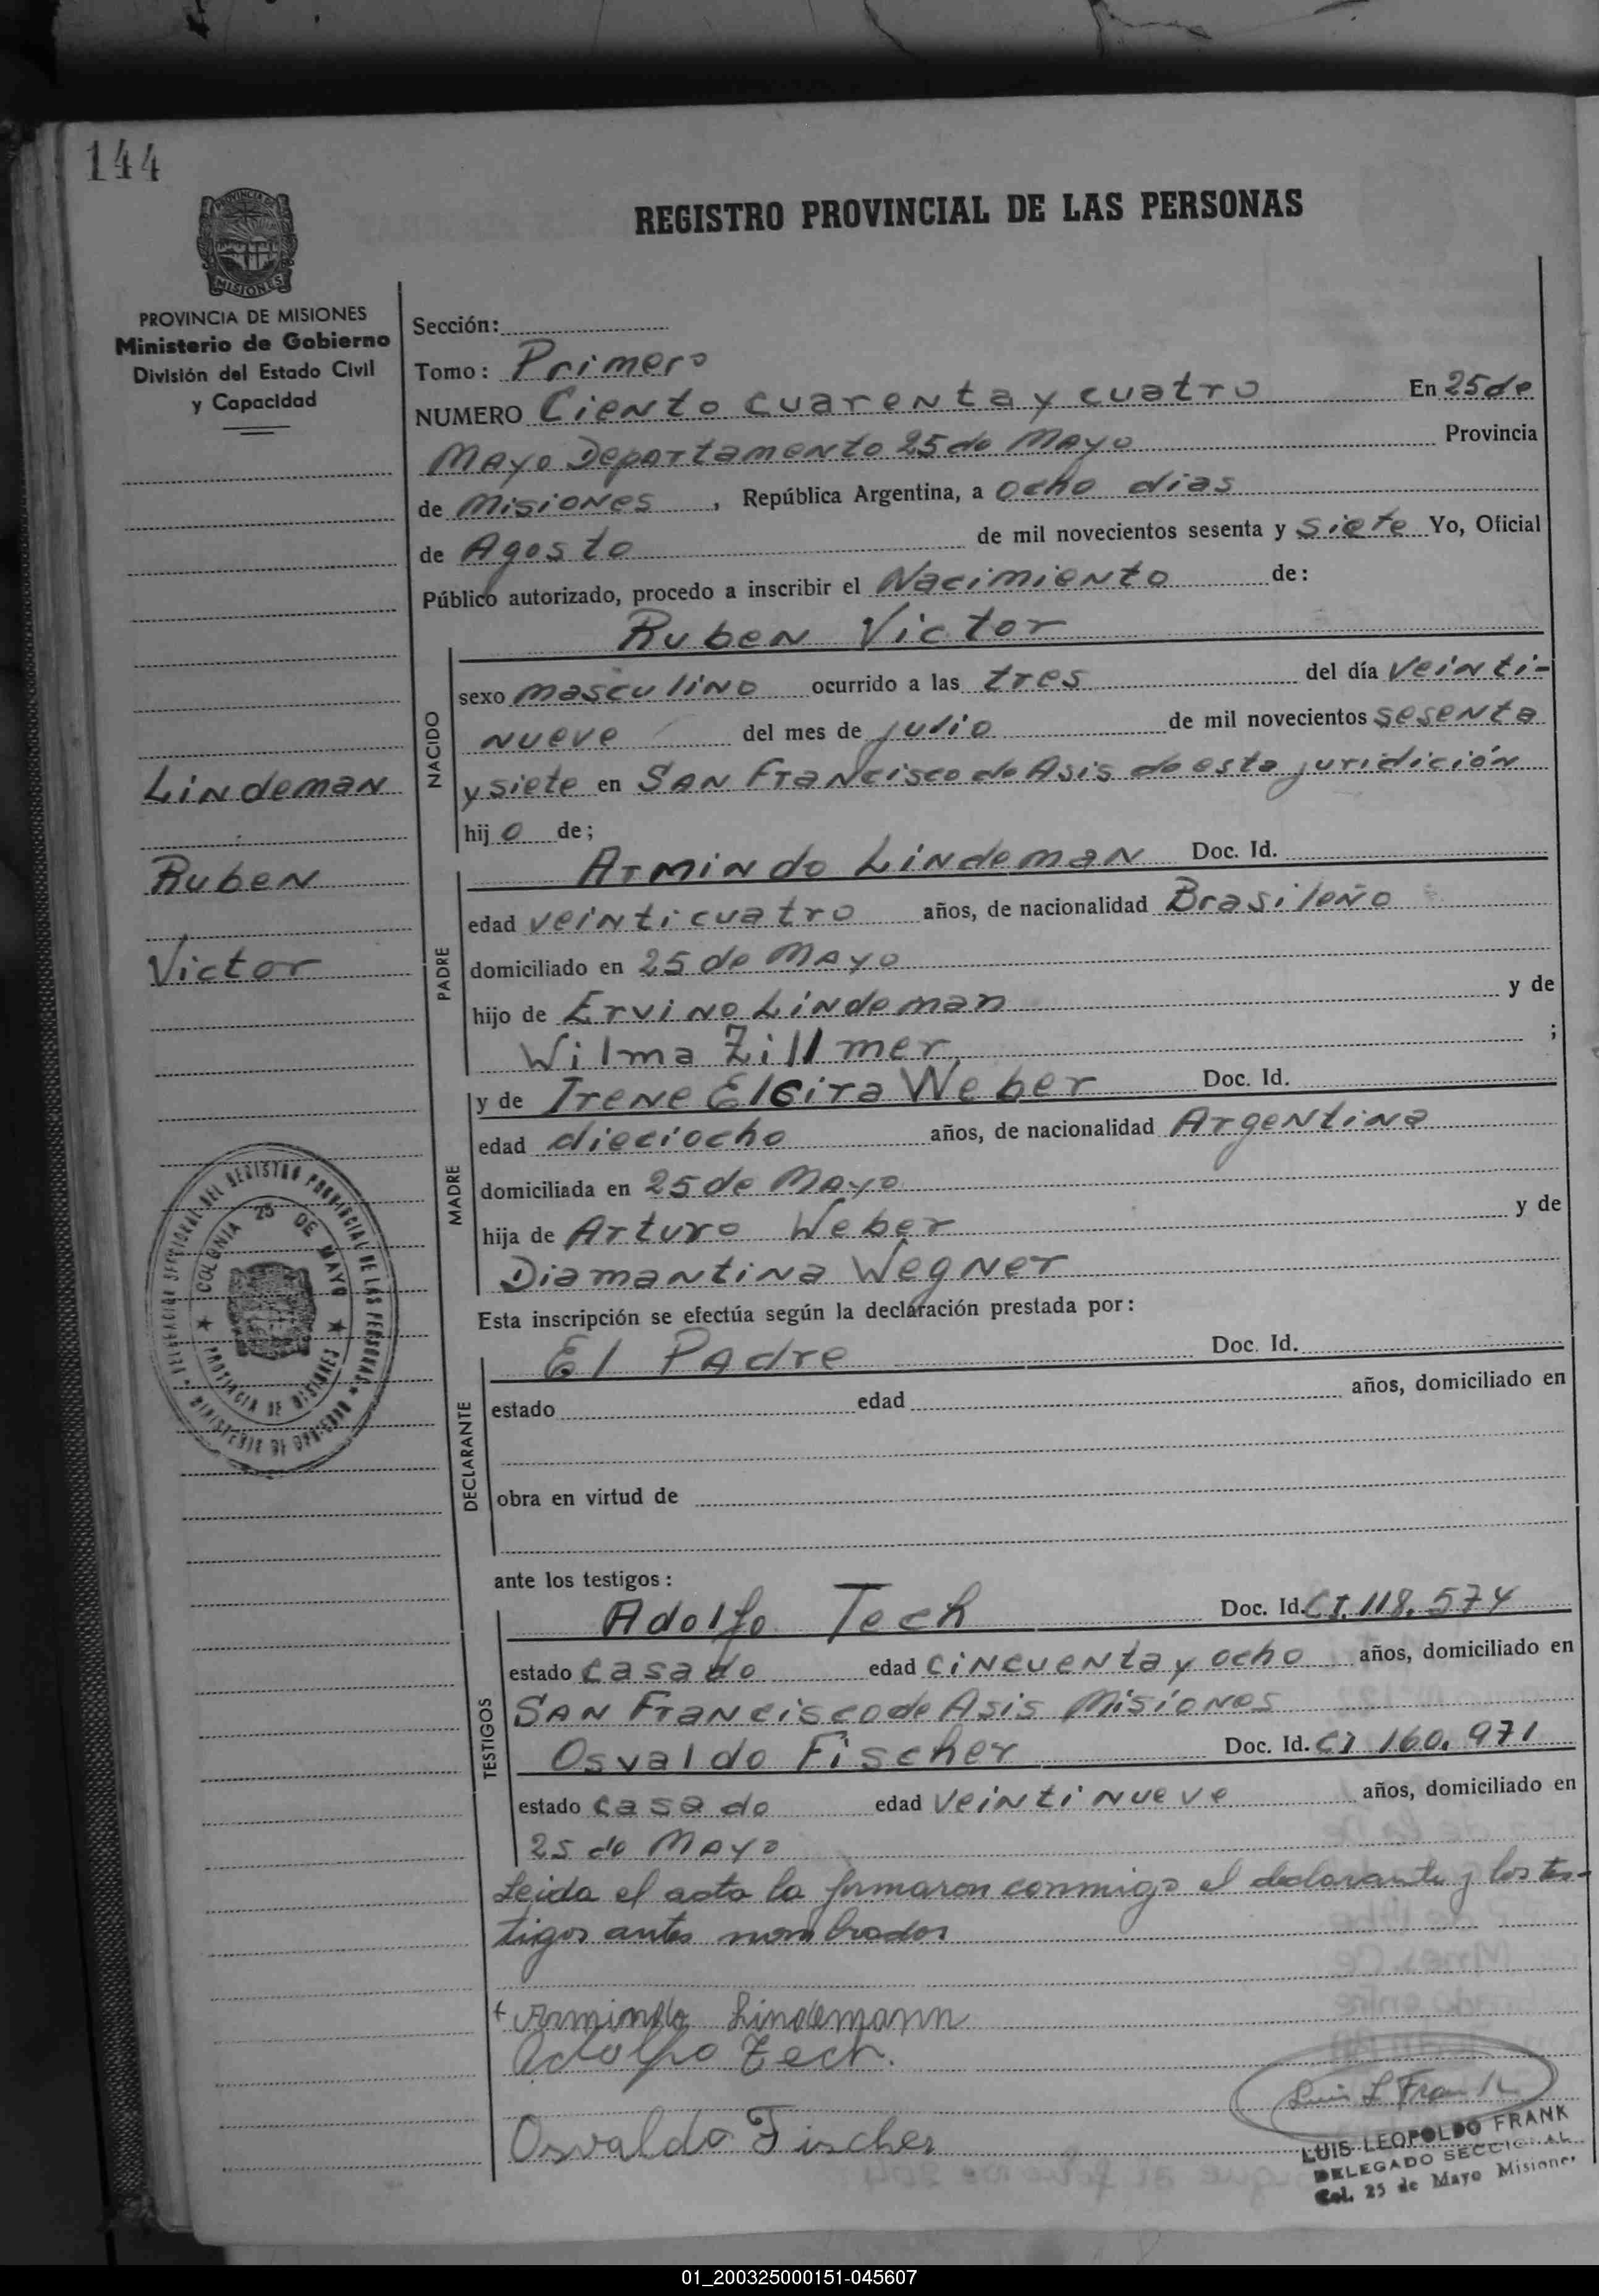 144
REGISTRO PROVINCIAL DE LAS PERSONAS
PROVINCIA DE
MISIONES
PROVINCIA DE MISIONES
Ministerio de Gobierno
División del Estado Civil
y Capacidad
Lindeman
Ruben
Victor
DELEGACION SECCIONAL DEL REGISTRO PROVINCIAL DE LAS PERSONAS
MINISTERIO DE GOBIERNO
COLONIA 25 DE MAYO
PROVINCIA DE MISIONES
Sección:
Tomo: Primero
NUMERO Ciento cuarenta y cuatro En 25 de
Mayo Departamento 25 de Mayo Provincia
de Misiones, República Argentina, a ocho dias
de Agosto de mil novecientos sesenta y siete Yo, Oficial
Público autorizado, procedo a inscribir el Nacimiento de:
Ruben Victor
NACIDO
sexo masculino ocurrido a las tres del día veinti-
nueve del mes de julio de mil novecientos sesenta
y siete en San Francisco de Asis de esta juridición
hij o de;
PADRE
Armindo Lindeman Doc. Id.
edad veinticuatro años, de nacionalidad Brasileño
domiciliado en 25 de Mayo
hijo de Ervino Lindeman y de
Wilma Zillmer ;
MADRE
y de Irene Elcira Weber Doc. Id.
edad dieciocho años, de nacionalidad Argentina
domiciliada en 25 de Mayo
hija de Arturo Weber y de
Diamantina Wegner
Esta inscripción se efectúa según la declaración prestada por:
DECLARANTE
El Padre Doc. Id.
estado edad años, domiciliado en
obra en virtud de
ante los testigos:
TESTIGOS
Adolfo Tech Doc. Id. CI. 118.574
estado casado edad cincuenta y ocho años, domiciliado en
San Francisco de Asis Misiones
Osvaldo Fischer Doc. Id. CI 160.971
estado casado edad veintinueve años, domiciliado en
25 de Mayo
Leida el acta la firmaron conmigo el declarante y los tes-
tigos antes nombrados
+ Armindo Lindemann
Adolfo Zech.
Osvaldo Fischer
Luis L Frank
LUIS LEOPOLDO FRANK
DELEGADO SECCIONAL
Col. 25 de Mayo Misiones
01_200325000151-045607